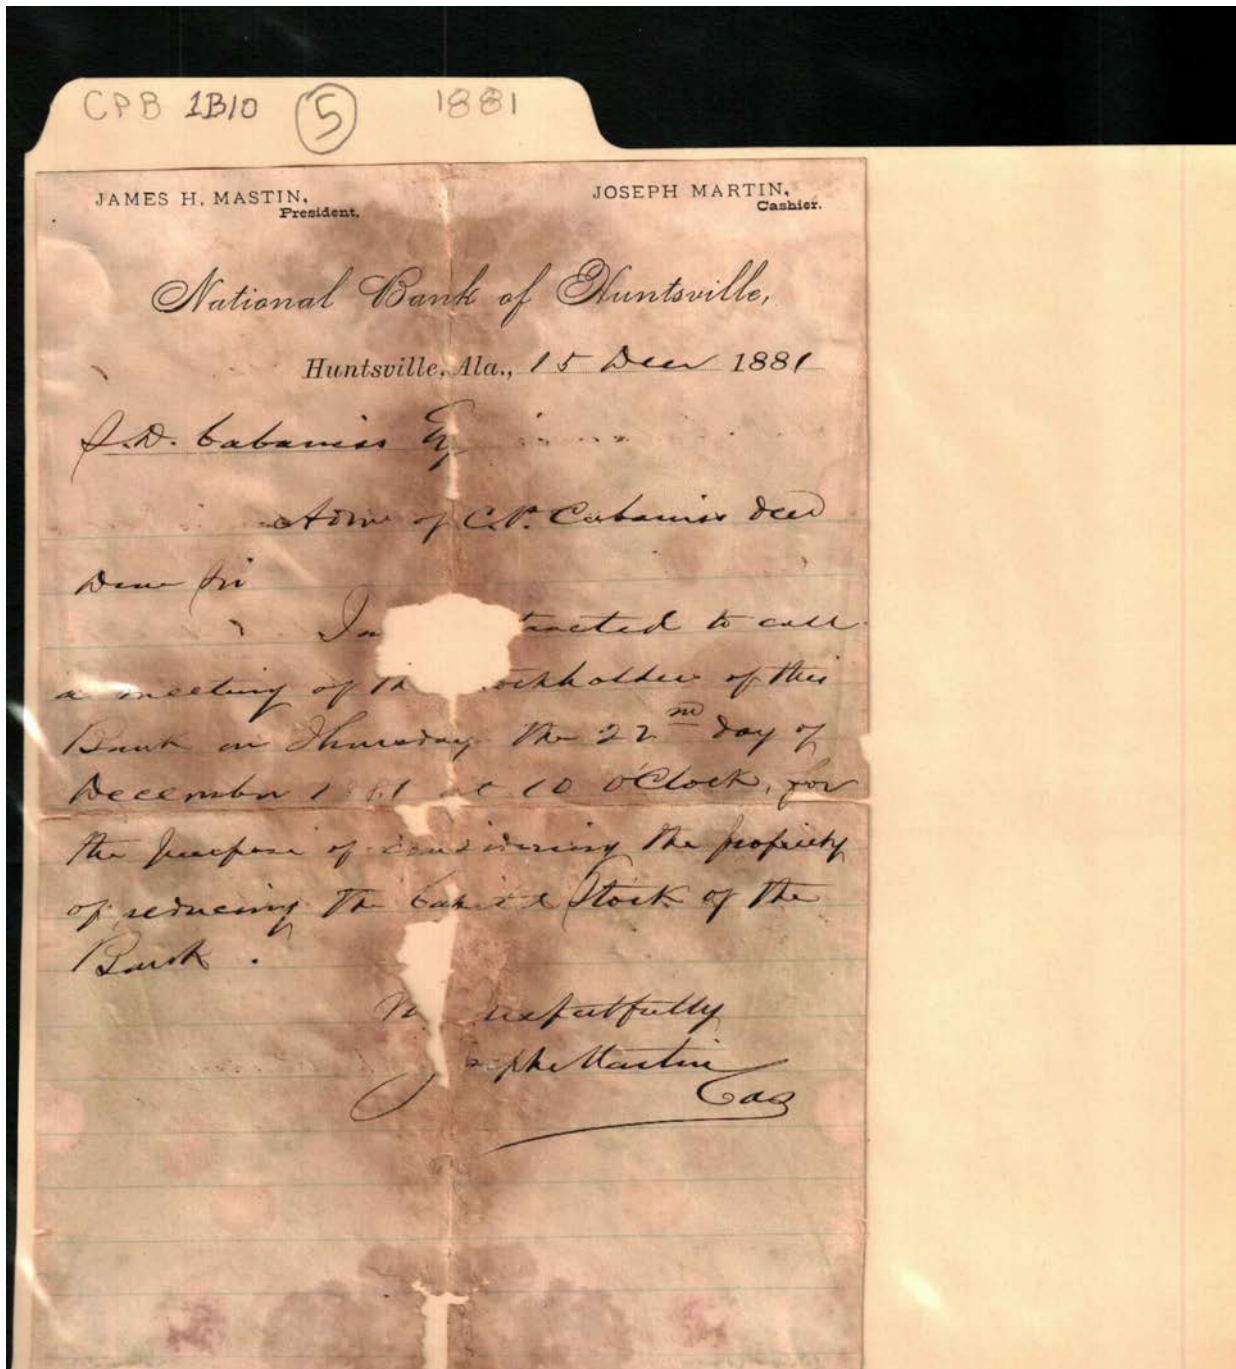 CPB 1B10 5 1881
JAMES H. MASTIN,
President.
JOSEPH MARTIN,
Cashier.
National Bank of Huntsville,
Huntsville, Ala., 15 Decr 1881
J. D. Cabaniss Esq
Admr of C. P. Cabaniss decd
Dear Sir
I am tructed to call
a meeting of the ockholders of this
Bank on Thursday the 22nd day of
December 1881 at 10 O'Clock, for
the purpose of considering the propriety
of reducing the Capital Stock of the
Bank.
respectfully
seph Martin
Cas